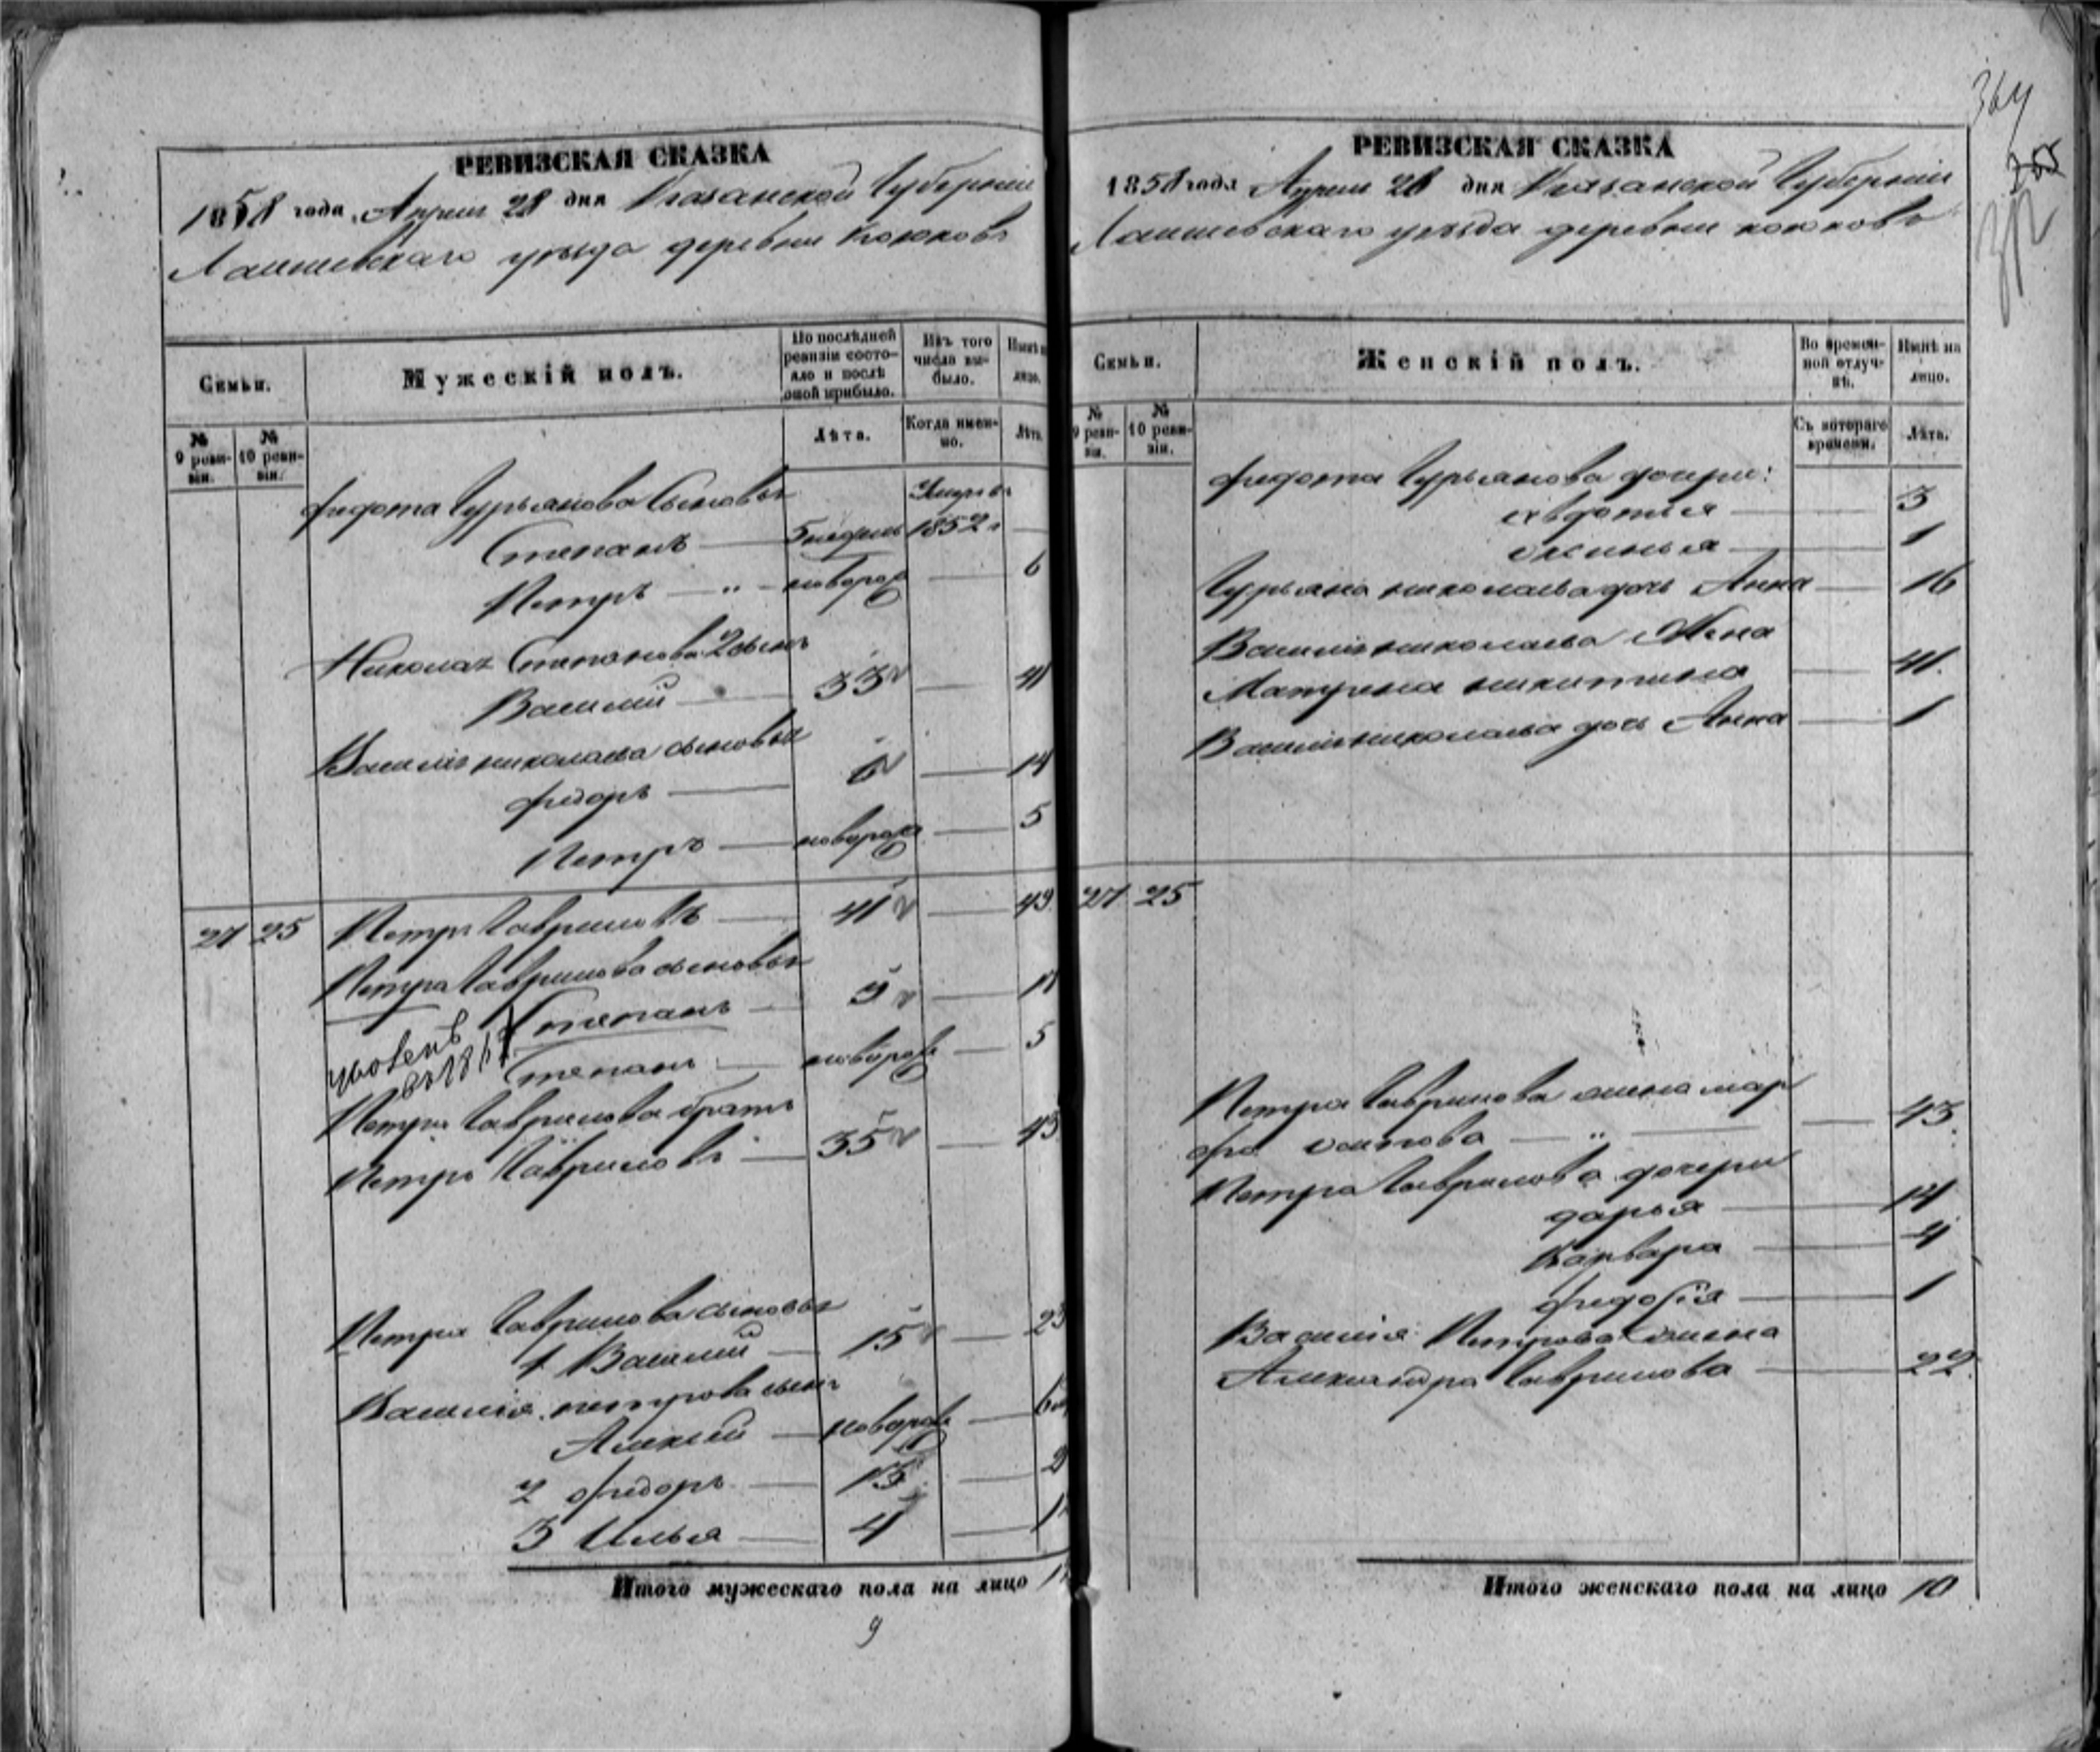 РЕВИЗСКАЯ СКАЗКА
1858 года, Апреля 28 дня Казанской Губернии
Лаишевскаго уезда деревни Коюковъ
Семьи.
Мужескій полъ.
По послѣдней ревизіи состо-
яло и послѣ
оной прибыло.
Изъ того
числа вы-
было.
Нынѣ на
лицо.
№
9 реви-
зіи.
№
10 реви-
зіи.
Лѣта.
Когда имен-
но.
Лѣта.
Федота Гурьянова Сыновья
Степанъ 5 недель Умеръ въ 1852 г
Петръ — " — новорож 6
Николая Степанова 2 сынъ
Василий 33 41
Василія николаева сыновья
Федоръ 6 14
Петръ новорож 5
27 25 Петръ Гавриловъ 41 49
Петра Гаврилова сыновья
Степанъ 9
уволенъ
Степанъ новорож 5
Петра Гаврилова братъ
Петръ Гавриловъ 35 43
Петра Гаврилова сыновья
1 Василий 15 23
Василія петрова сынъ
Алексей новорож
2 Федоръ 13
3 Илья 4
Итого мужескаго пола на лицо
9
364
РЕВИЗСКАЯ СКАЗКА
1858 года Апреля 28 дня Казанской Губернии
Лаишевскаго уезда деревни коюковъ
Семьи.
Женскій полъ.
Во времен-
ной отлуч-
кѣ.
Нынѣ на
лицо.
№
9 реви-
зіи.
№
10 реви-
зіи.
Съ котораго
времени.
Лѣта.
Федота Гурьянова дочери:
евдотья 3
1
Гурьяна николаева дочь Анна 16
Василія николаева Жена
Матрена никитина 41.
Василія николаева дочь Анна 1
27 25
Петра Гаврилова жена мар
фа осипова — " — 43.
Петра Гаврилова дочери
дарья 14
Варвара 4
федосья 1
Василія Петрова жена
Александра Гаврилова 22.
Итого женскаго пола на лицо 10